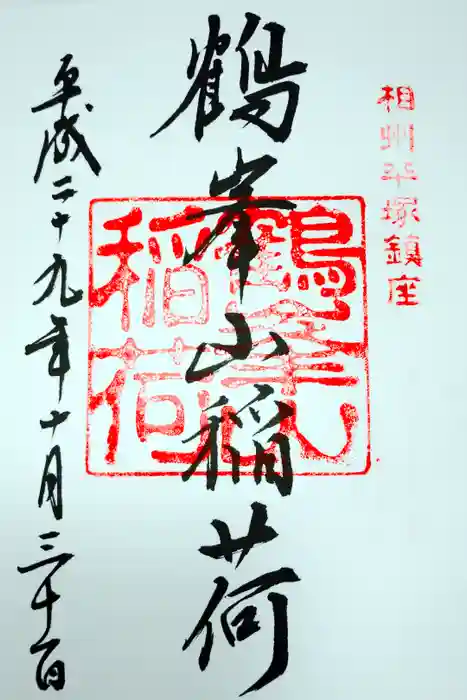 相州平塚鎮座
鶴峯山稲荷
鶴峯山
稲荷
平成二十九年十月三十日